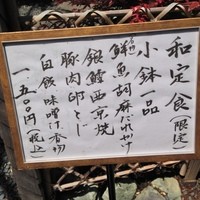 和定食(限定)
小鉢一品
鮮魚胡麻だれかけ
銀鱈西京焼
豚肉卵とじ
白飯 味噌汁 香物
一、五〇〇円(税込)